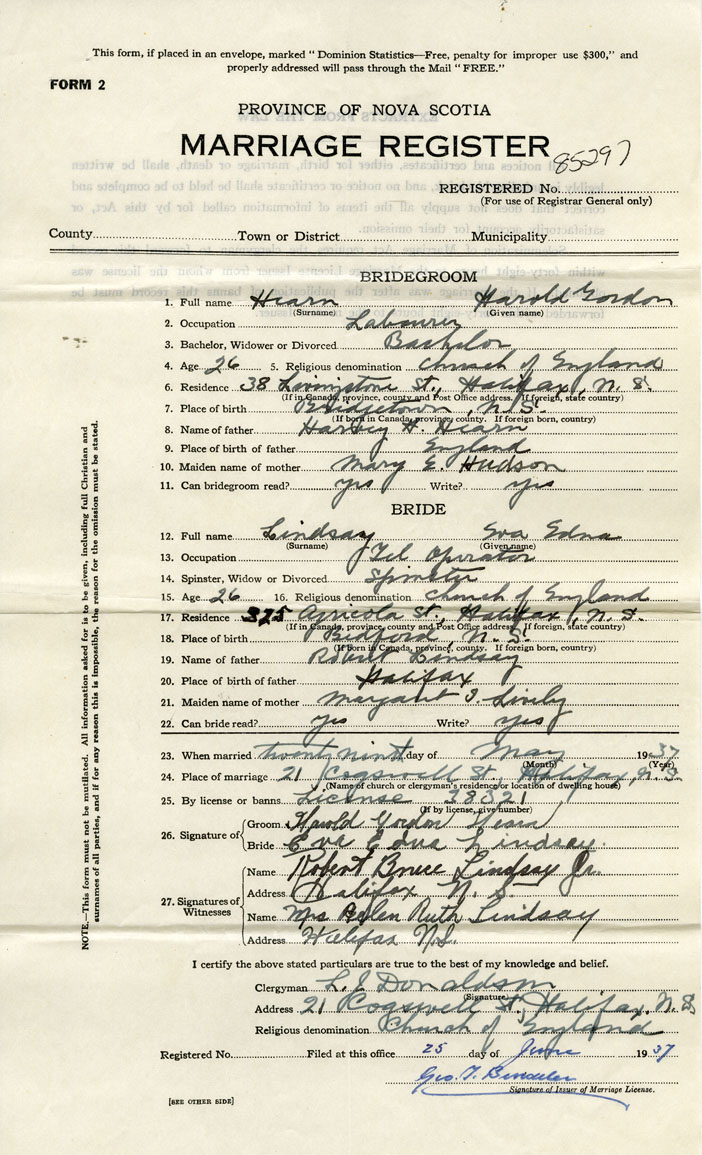 This form, if placed in an envelope, marked " Dominion Statistics—Free, penalty for improper use $300," and
properly addressed will pass through the Mail " FREE."
FORM 2
PROVINCE OF NOVA SCOTIA
MARRIAGE REGISTER
85297
REGISTERED No.
(For use of Registrar General only)
County Town or District Municipality
BRIDEGROOM
1. Full name Hearn Harold Gordon
(Surname) (Given name)
2. Occupation Labourer
3. Bachelor, Widower or Divorced Bachelor
4. Age 26 5. Religious denomination Church of England
6. Residence 38 Livingstone St., Halifax, N. S.
(If in Canada, province, county and Post Office address. If foreign, state country)
7. Place of birth Bridgetown, N. S.
(If born in Canada, province, county. If foreign born, country)
8. Name of father Harvey H. Hearn
9. Place of birth of father England
10. Maiden name of mother Mary E. Hudson
11. Can bridegroom read? yes Write? yes
BRIDE
12. Full name Lindsay Eva Edna
(Surname) (Given name)
13. Occupation Tel Operator
14. Spinster, Widow or Divorced Spinster
15. Age 26 16. Religious denomination Church of England
17. Residence 375 Agricola St., Halifax, N. S.
(If in Canada, province, county and Post Office address. If foreign, state country)
18. Place of birth Bedford, N. S.
(If born in Canada, province, county. If foreign born, country)
19. Name of father Robert Lindsay
20. Place of birth of father Halifax
21. Maiden name of mother Margaret J. Lively
22. Can bride read? yes Write? yes
23. When married twenty ninth day of May 1937
(Month) (Year)
24. Place of marriage 21 Cogswell St., Halifax, N. S.
(Name of church or clergyman's residence or location of dwelling house)
25. By license or banns License 38821
(If by license, give number)
26. Signature of Groom Harold Gordon Hearn
Bride Eva Edna Lindsay.
27. Signatures of Witnesses
Name Robert Bruce Lindsay Jr.
Address Halifax N. S.
Name Mrs Helen Ruth Lindsay
Address Halifax N.S.
I certify the above stated particulars are true to the best of my knowledge and belief.
Clergyman L. J. Donaldson
(Signature)
Address 21 Cogswell St, Halifax. N. S
Religious denomination Church of England
Registered No. Filed at this office 25 day of June 1937
Geo. T.
Signature of Issuer of Marriage License.
[SEE OTHER SIDE]
NOTE.—This form must not be mutilated. All information asked for is to be given, including full Christian and
surnames of all parties, and if for any reason this is impossible, the reason for the omission must be stated.